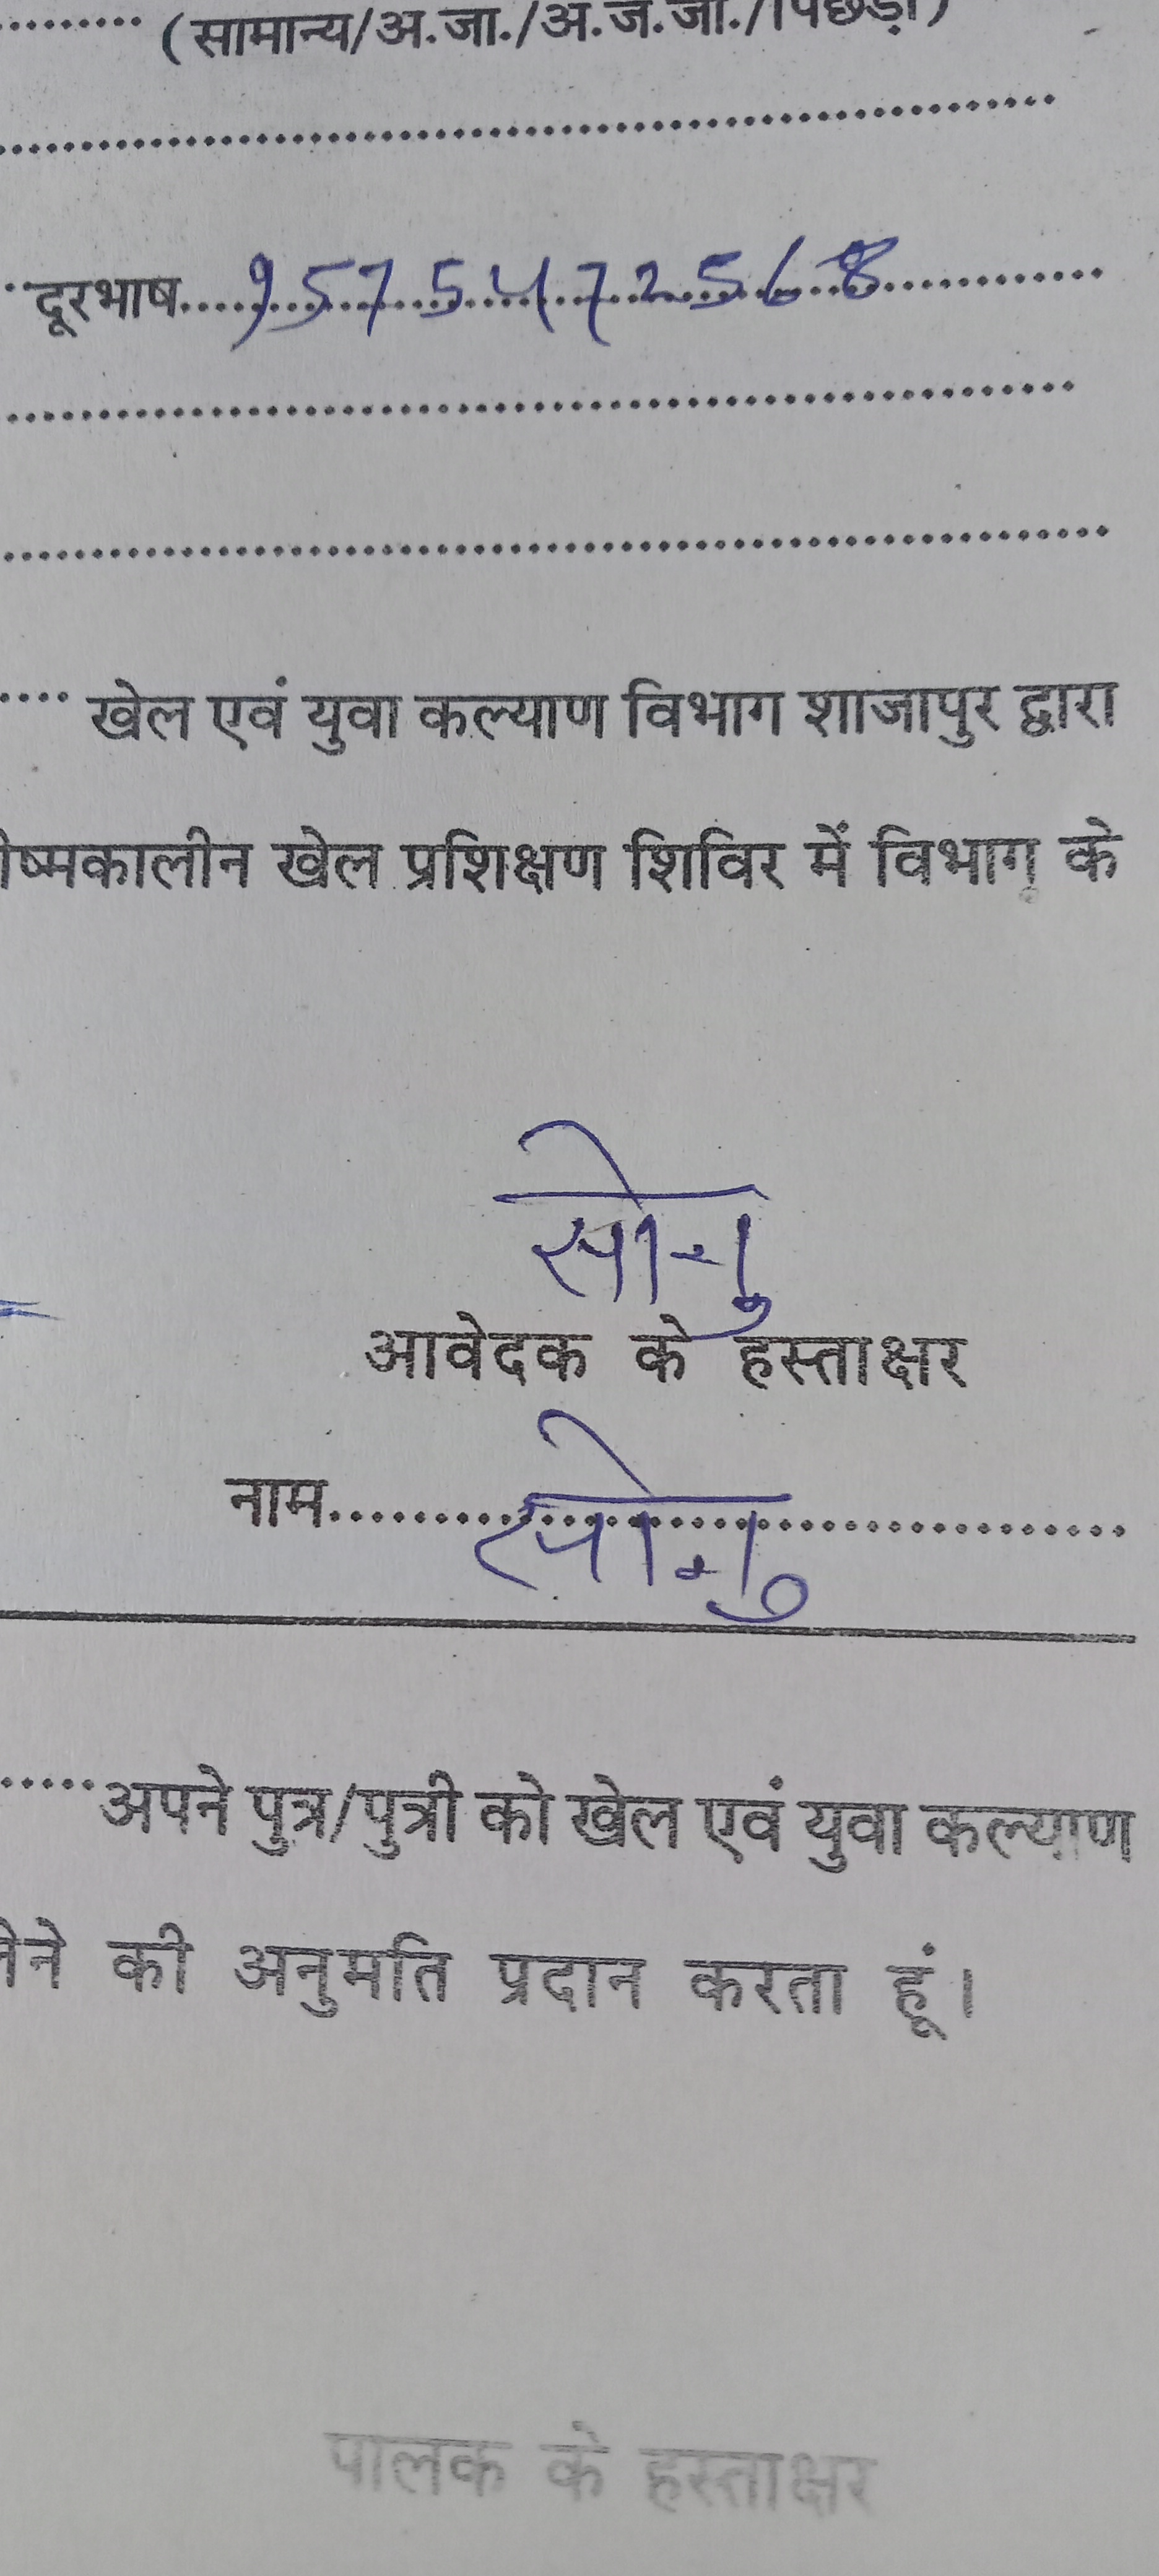 ........ (सामान्य/अ.जा./अ.ज.जा./पिछड़ा)
दूरभाष....9575472568............
.... खेल एवं युवा कल्याण विभाग शाजापुर द्वारा
ीष्मकालीन खेल प्रशिक्षण शिविर में विभाग के
सोनु
आवेदक के हस्ताक्षर
नाम........सोनु............
.....अपने पुत्र/पुत्री को खेल एवं युवा कल्याण
लेने की अनुमति प्रदान करता हूं।
पालक के हस्ताक्षर